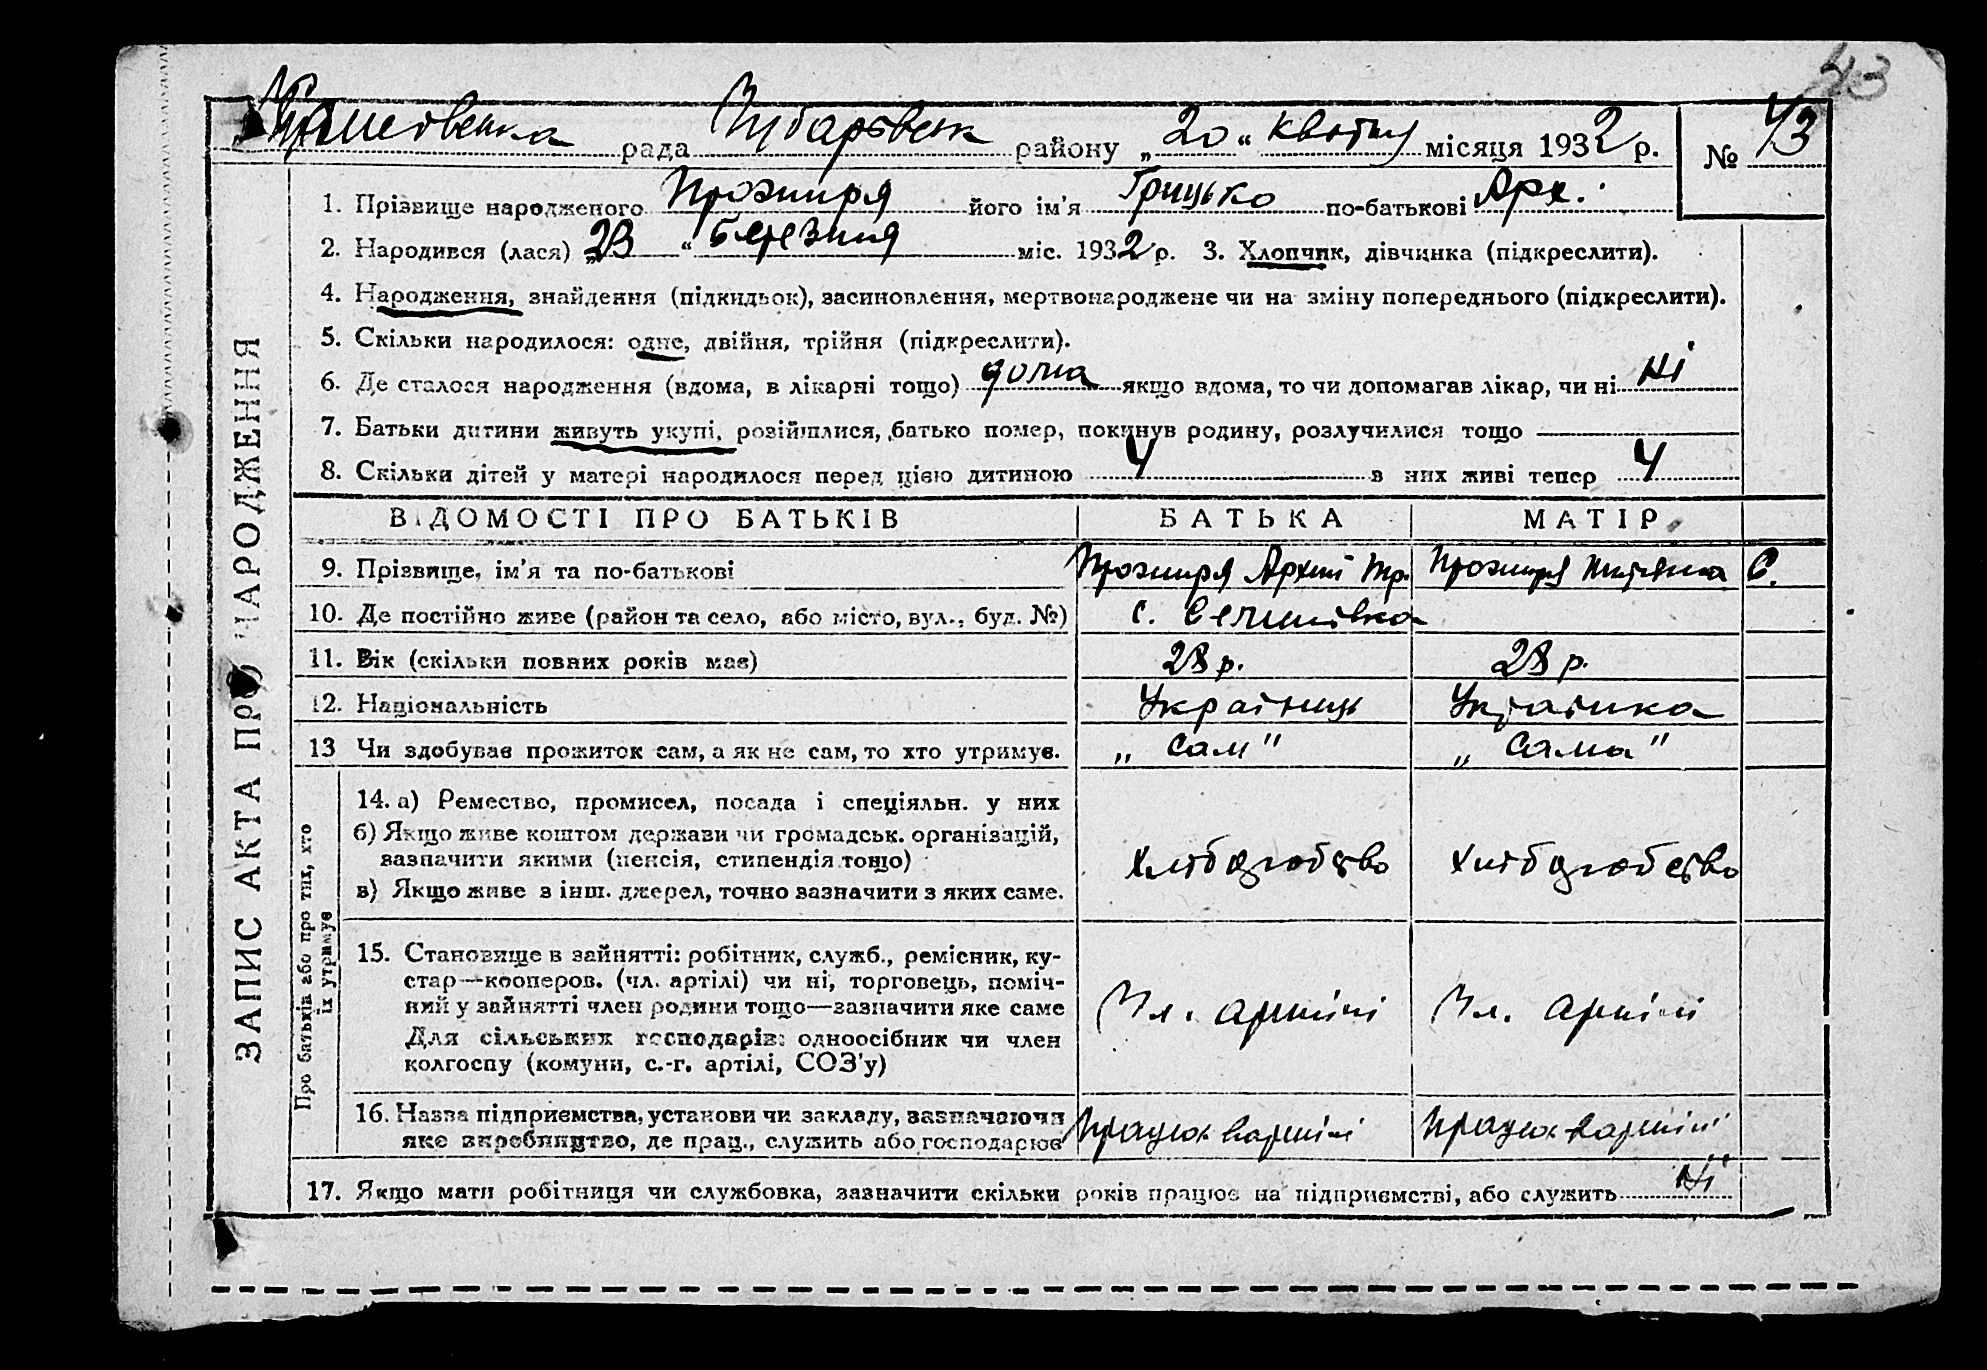 43
рада Чубарівськ району „20“ квітня місяця 1932 р. № 43
1. Прізвище народженого Прожиря його ім'я Грицько по-батькові Арх.
2. Народився (лася) „23“ березня міс. 1932 р. 3. Хлопчик, дівчинка (підкреслити).
4. Народження, знайдення (підкидьок), засиновлення, мертвонароджене чи на зміну попереднього (підкреслити).
5. Скільки народилося: одне, двійня, трійня (підкреслити).
6. Де сталося народження (вдома, в лікарні тощо) дома якщо вдома, то чи допомагав лікар, чи ні ні
7. Батьки дитини живуть укупі, розійшлися, батько помер, покинув родину, розлучилися тощо
8. Скільки дітей у матері народилося перед цією дитиною 4 в них живі тепер 4
ВІДОМОСТІ ПРО БАТЬКІВ БАТЬКА МАТІР
9. Прізвище, ім'я та по-батькові Прожиря Архип Гр. Прожиря С.
10. Де постійно живе (район та село, або місто, вул., буд. №) с.
11. Вік (скільки повних років має) 28 р. 28 р.
12. Національність Українець Українка
13 Чи здобував прожиток сам, а як не сам, то хто утримув. „Сам" „Сама"
Про батьків або про тих, хто
їх утримує
14. а) Ремество, промисел, посада і спеціяльн. у них
б) Якщо живе коштом держави чи громадськ. організацій,
вазначити якими (пенсія, стипендія тощо)
в) Якщо живе з інш. джерел, точно вазначити з яких саме.
Хліборобство Хліборобство
15. Становище в зайнятті: робітник, служб., ремісник, ку-
стар—кооперов. (чл. артілі) чи ні, торговець, поміч-
ний у зайнятті член родини тощо—зазначити яке саме
Для сільських господарів: одноосібник чи член
колгоспу (комуни, с.-г. артілі, СОЗ'у)
Чл. артілі Чл. артілі
16. Назва підприємства, установи чи закладу, зазначаючи
яке виробництво, де прац., служить або господарює
Працює в артілі Працює в артілі
17. Якщо мати робітниця чи службовка, зазначити скільки років працює на підприємстві, або служить ні
ЗАПИС АКТА ПРО НАРОДЖЕННЯ